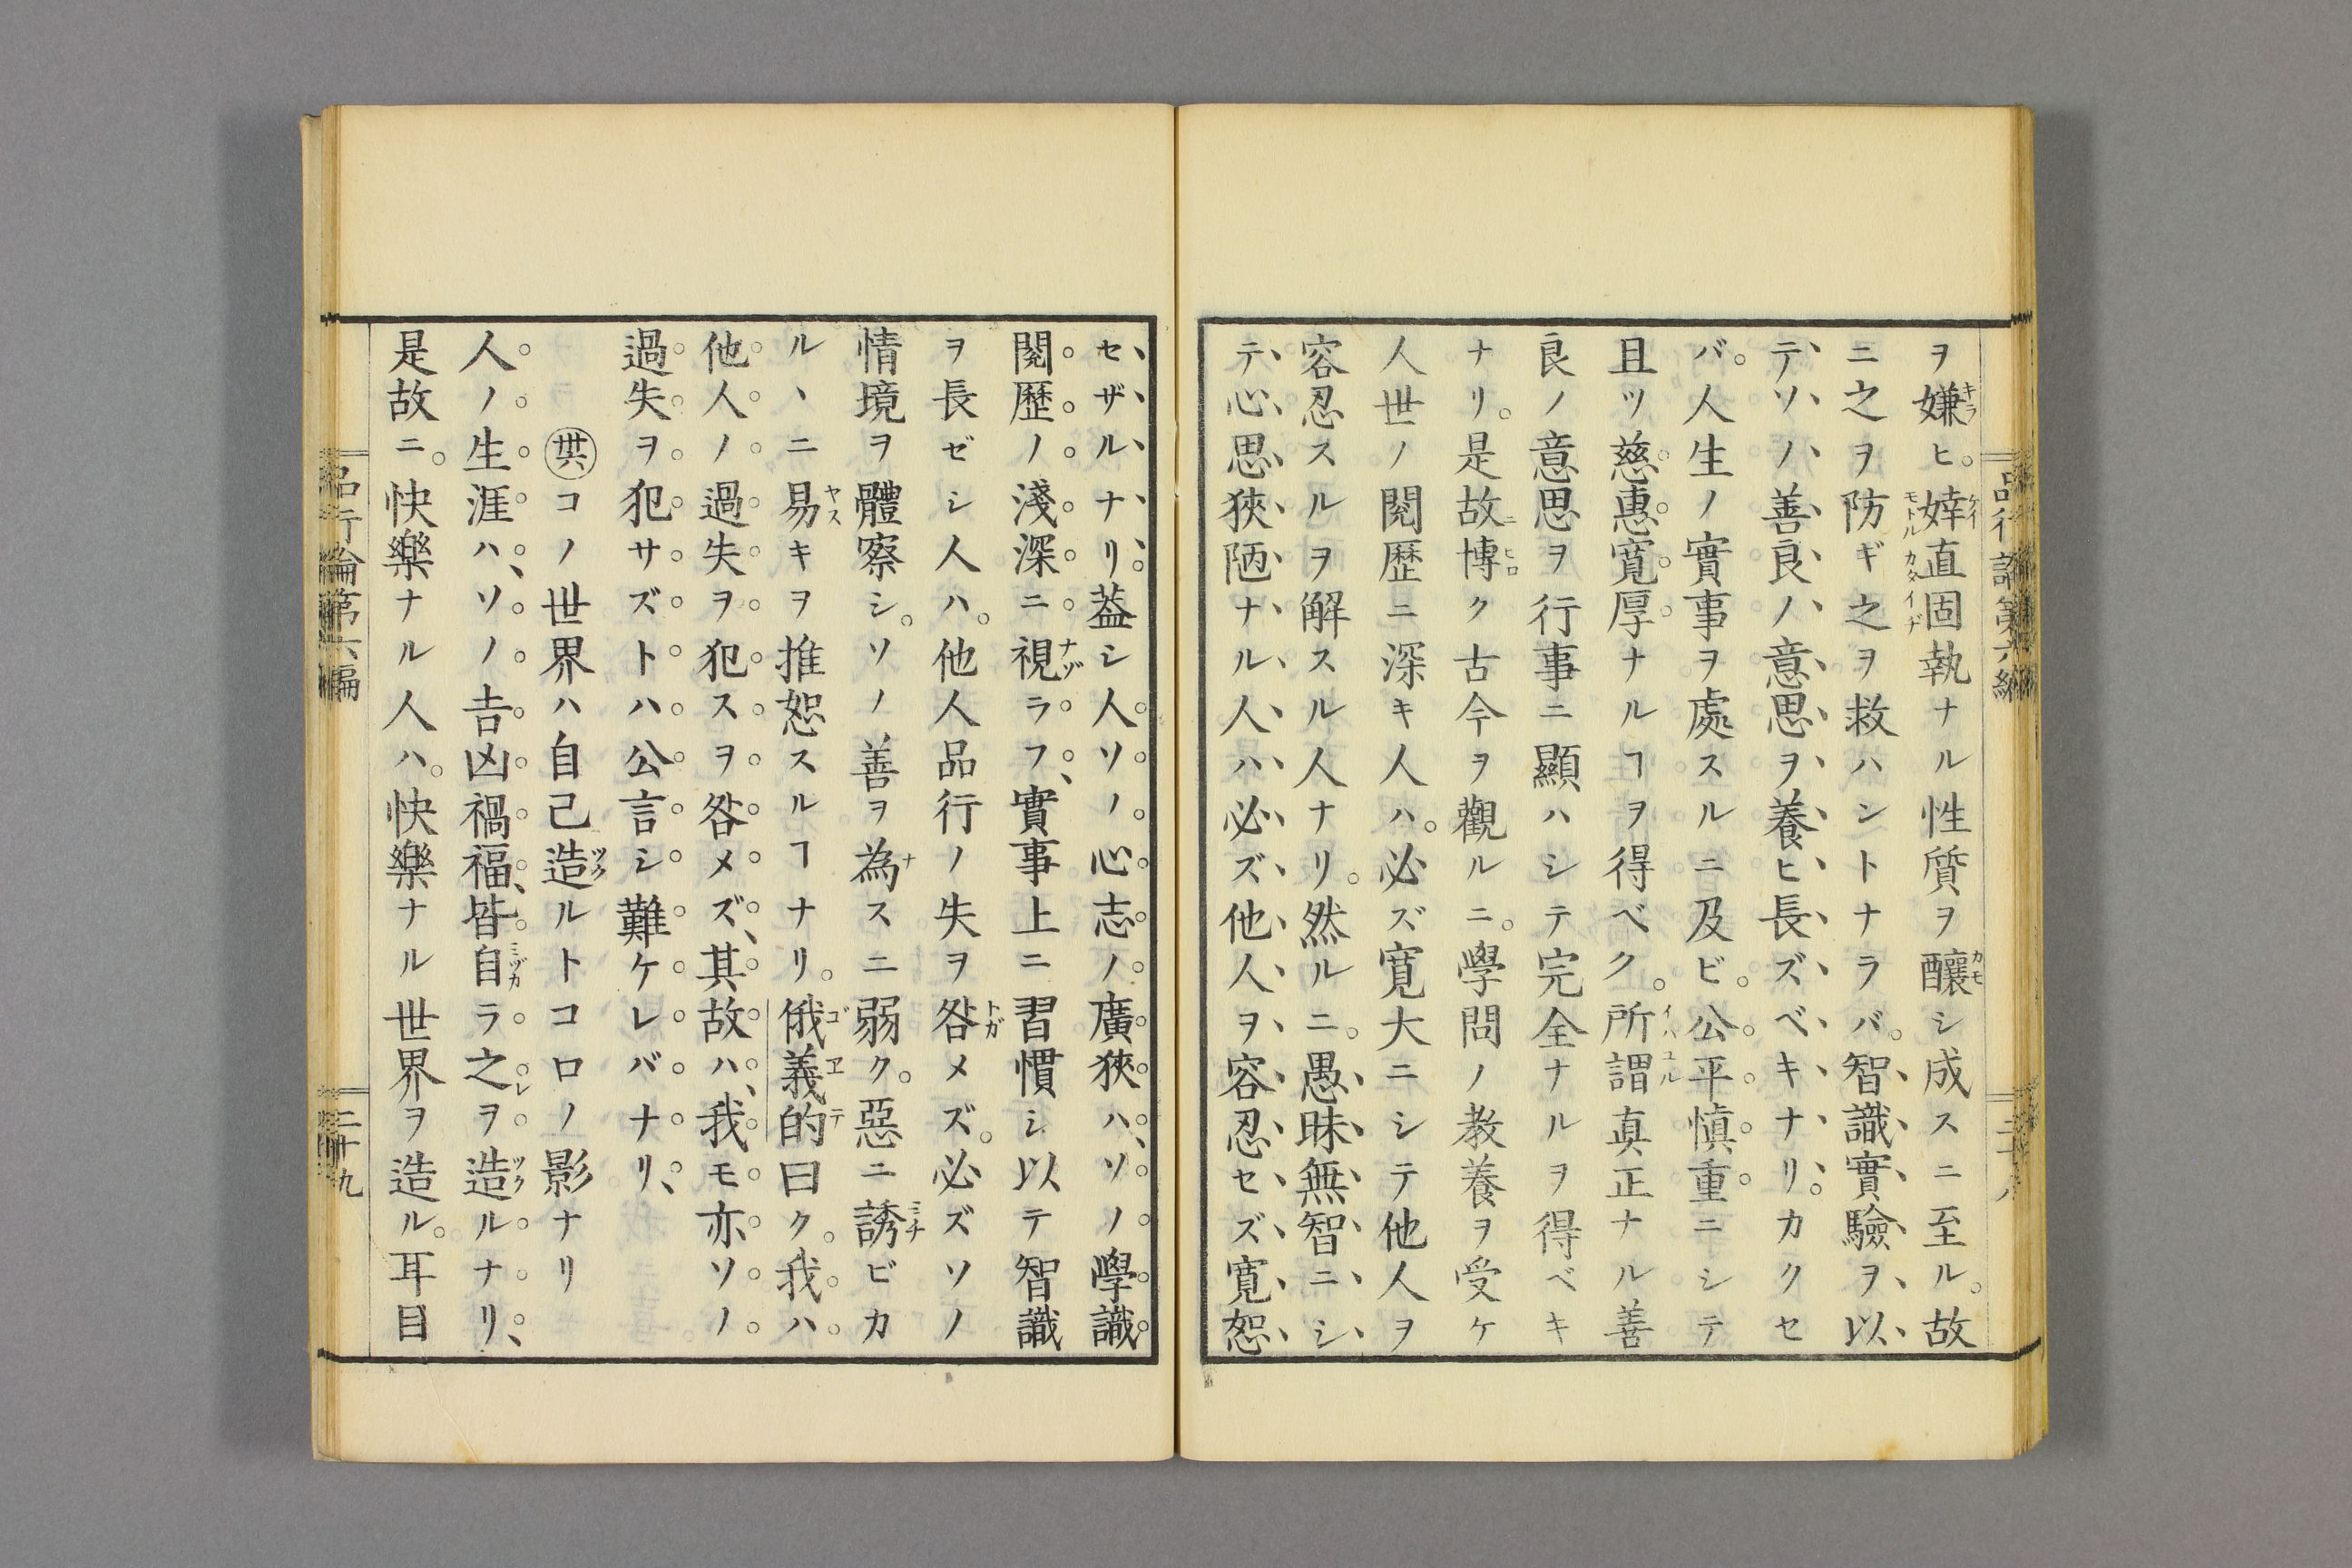 ヲ嫌ヒ。婞直固執ナル性質ヲ釀シ成スニ至ル。故
ニ之ヲ防ギ之ヲ救ハントナラバ。智識實驗ヲ以
テソノ善良ノ意思ヲ養ヒ長ズベキナリ。カクセ
バ。人生ノ實事ヲ處スルニ及ビ。公平慎重ニシテ
且ツ慈惠寬厚ナルヿヲ得ベク。所謂真正ナル善
良ノ意思ヲ行事ニ顯ハシテ完全ナルヲ得ベキ
ナリ。是故ニ博ク古今ヲ觀ルニ。學問ノ教養ヲ受ケ
人世ノ閱歷ニ深キ人ハ。必ズ寬大ニシテ他人ヲ
容忍スルヲ解スル人ナリ。然ルニ。愚昧無智ニシ
テ心思狹陋ナル人ハ必ズ他人ヲ容忍セズ寬恕
品行論第六編
二十八
セザルナリ。葢シ人ソノ心志ノ廣狹ハ、ソノ學識
閱歷ノ淺深ニ視ラフ、實事上ニ習慣シ以テ智識
ヲ長ゼシ人ハ。他人品行ノ失ヲ咎メズ。必ズソノ
情境ヲ體察シ。ソノ善ヲ為スニ弱ク。惡ニ誘ビカ
ルヽニ易キヲ推恕スルヿナリ。俄義的曰ク。我ハ
他人ノ過失ヲ犯スヲ咎メズ、其故ハ、我モ亦ソノ
過失ヲ犯サズトハ公言シ難ケレバナリ、
㊲コノ世界ハ自己造ルトコロノ影ナリ
人ノ生涯ハ、ソノ吉凶禍福、皆自ラ之ヲ造ルナリ、
是故ニ。快樂ナル人ハ。快樂ナル世界ヲ造ル。耳目
品行論第六編
二十九